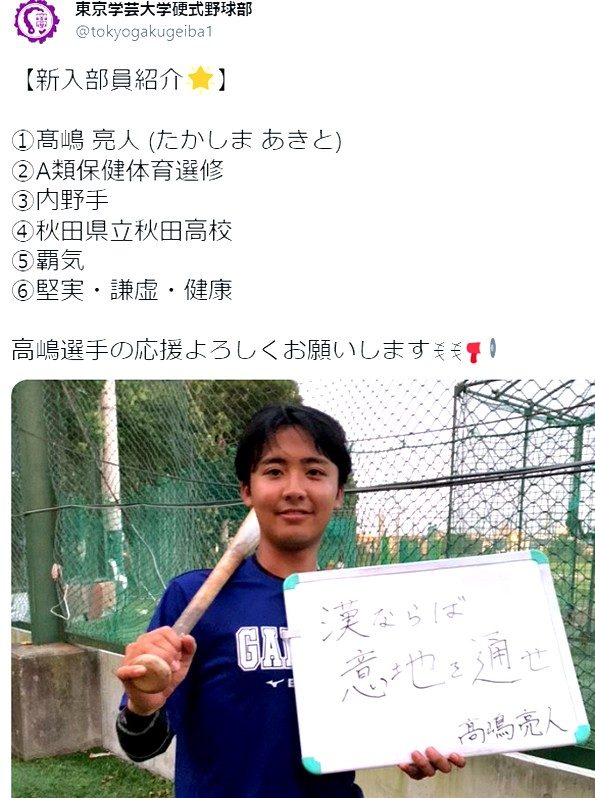 東京学芸大学硬式野球部
@tokyogakugeiba1
【新入部員紹介⭐】
①髙嶋 亮人 (たかしま あきと)
②A類保健体育選修
③内野手
④秋田県立秋田高校
⑤覇気
⑥堅実・謙虚・健康
高嶋選手の応援よろしくお願いします
漢ならば
意地を通せ
髙嶋亮人